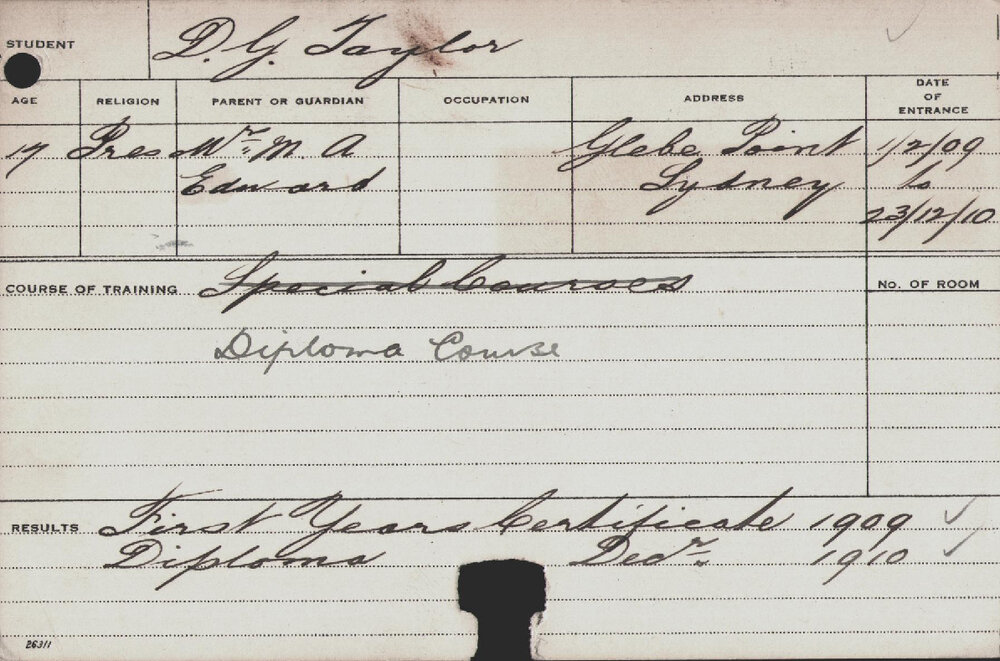 STUDENT D. G. Taylor
AGE RELIGION PARENT OR GUARDIAN OCCUPATION ADDRESS DATE OF ENTRANCE
17 Pres Mr. M. A Glebe Point 1/2/09
Edward Sydney to
23/12/10
COURSE OF TRAINING Special Courses No. OF ROOM
Diploma Course
RESULTS First Years Certificate 1909
Diploma Decr. 1910
26311